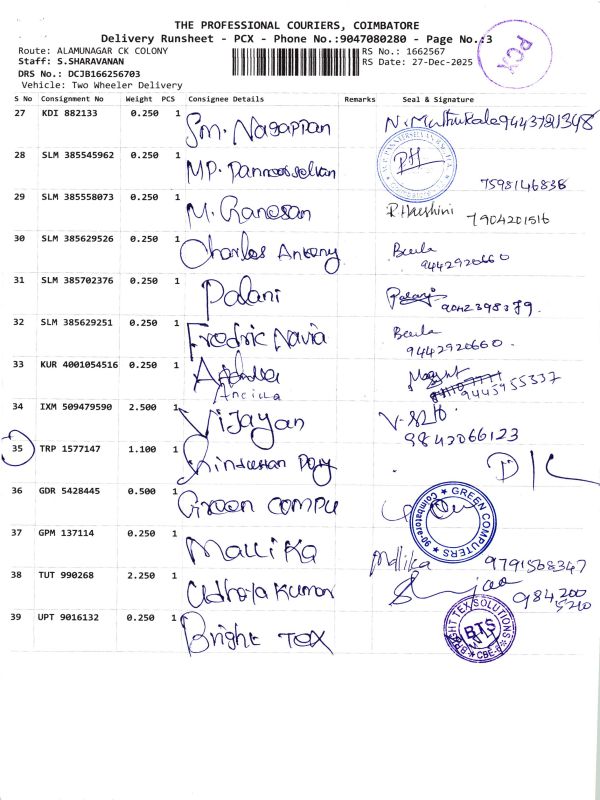 THE PROFESSIONAL COURIERS, COIMBATORE
Delivery Runsheet - PCX - Phone No.:9047080280 - Page No.:3
PCX
Route: ALAMUNAGAR CK COLONY
RS No.: 1662567
Staff: S.SHARAVANAN
RS Date: 27-Dec-2025
DRS No.: DCJB166256703
Vehicle: Two Wheeler Delivery
S No Consignment No Weight PCS Consignee Details Remarks Seal & Signature
27 KDI 882133 0.250 1 Sm. Nagappan
28 SLM 385545962 0.250 1 MP. Panneerselvan 7598146836
29 SLM 385558073 0.250 1 M. Ganesan R Harshini 7904201516
30 SLM 385629526 0.250 1 Charles Antony Beula
9442920660
31 SLM 385702376 0.250 1 Palani
32 SLM 385629251 0.250 1 Fredric Navia Beula
9442920660.
33 KUR 4001054516 0.250 1
Ancilla
9445955337
34 IXM 509479590 2.500 1 Vijayan
9842066123
35 TRP 1577147 1.100 1 D/C
36 GDR 5428445 0.500 1 Green Compu
GREEN COMPUTERS
37 GPM 137114 0.250 1 Mallika Mallika 9791568347
38 TUT 990268 2.250 1 984200
5210
39 UPT 9016132 0.250 1 Bright Tex
BRIGHT TEX SOLUTIONS
BTS